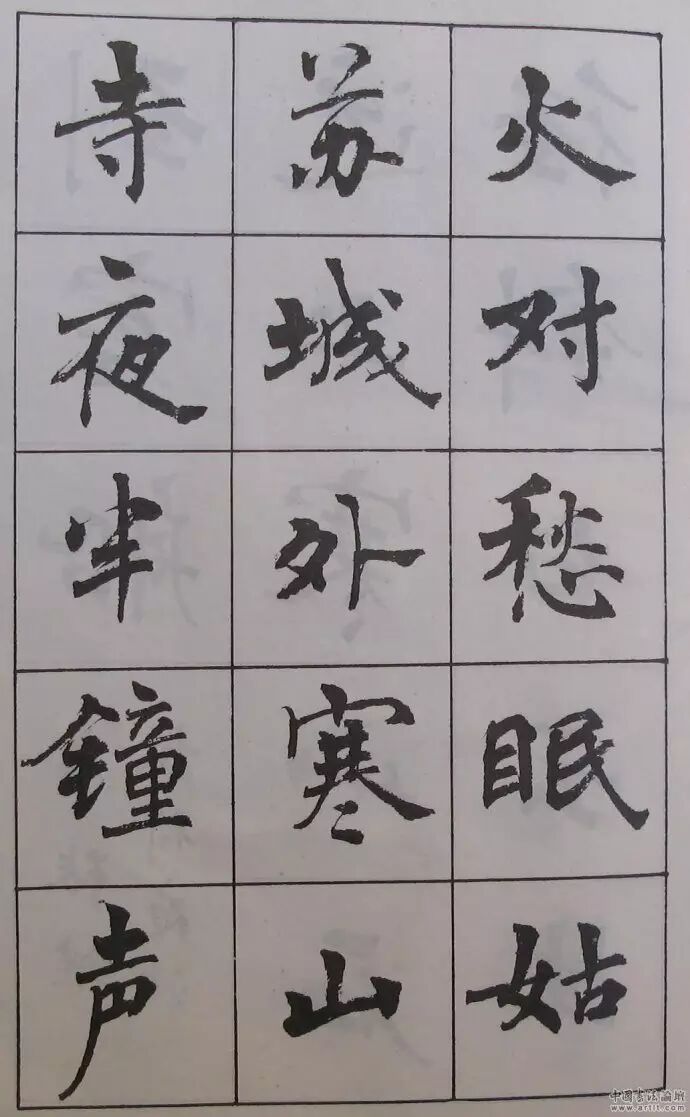 火对愁眠姑
苏城外寒山
寺夜半钟声
中国书法论坛
www.artlt.com